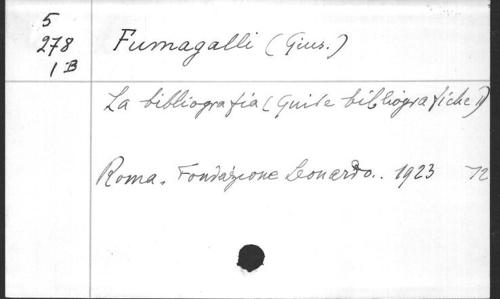 5
278
1 B
Fumagalli (Gius.)
La bibliografia (Guide bibliografiche)
Roma. Fondazione Leonardo.. 1923 12